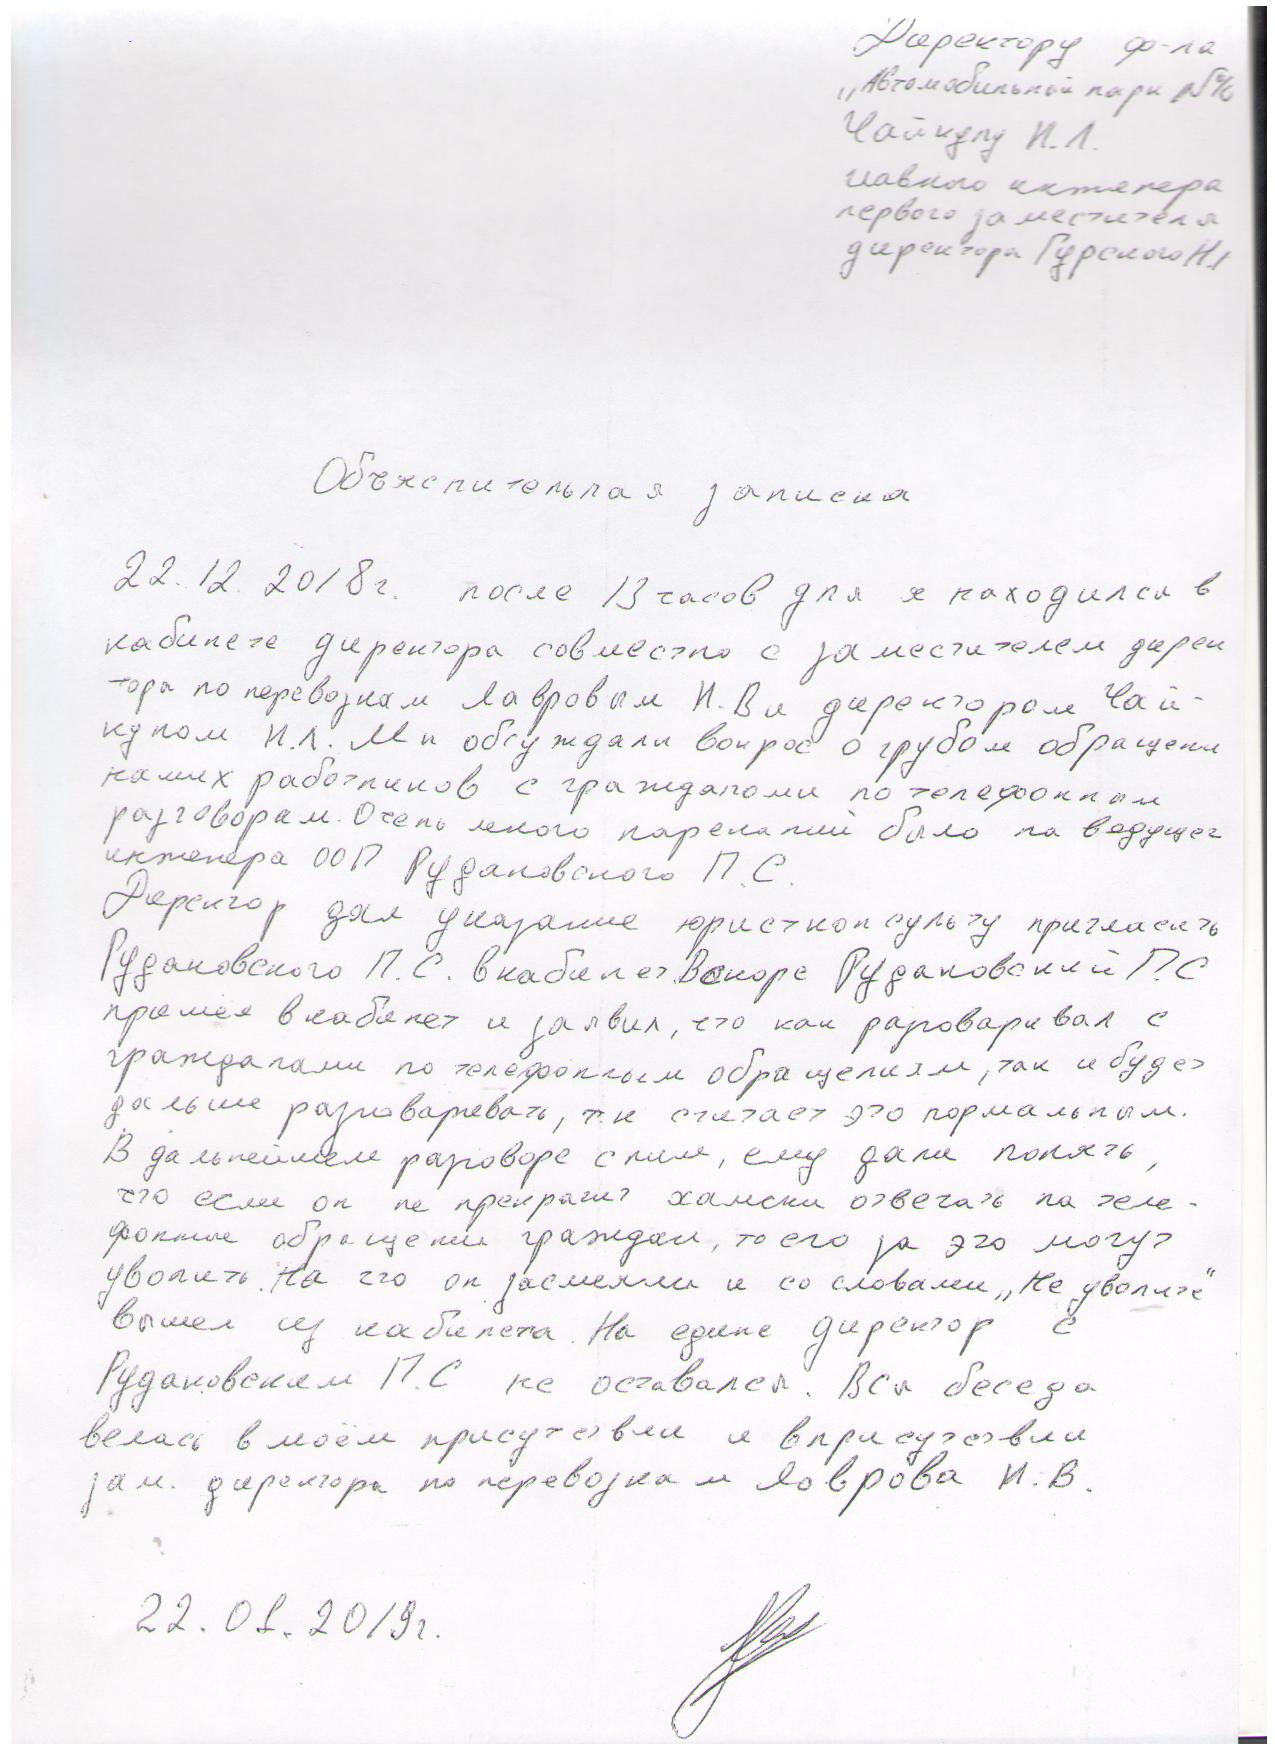 Директору ф-ла
„Автомобильный парк №6
Чайкуну И.Л.
главного инженера
первого заместителя
директора Гурского Н.
Объяснительная записка
22.12.2018г. после 13 часов дня я находился в
кабинете директора совместно с заместителем дирек
тора по перевозкам Лавровым И.В и директором Чай-
куном И.Л. Мы обсуждали вопрос о грубом обращени
наших работников с гражданами по телефонным
разговорам. Очень много нареканий было на ведущег
инженера ООП Рудаковского П.С.
Директор дал указание юристконсульту пригласить
Рудаковского П.С. в кабинет. Вскоре Рудаковский П.С
пришел в кабинет и заявил, что как разговаривал с
гражданами по телефонным обращениям, так и будет
дальше разговаривать, т.к считает это нормальным.
В дальнейшем разговоре с ним, ему дали понять,
что если он не прекратит хамски отвечать на теле-
фонные обращения граждан, то его за это могут
уволить. На что он засмеялся и со словами „Не уволите"
вышел из кабинета. На едине директор с
Рудаковским П.С не оставался. Вся беседа
велась в моём присутствии и в присутствии
зам. директора по перевозкам Лаврова И.В.
22.01.2019г.